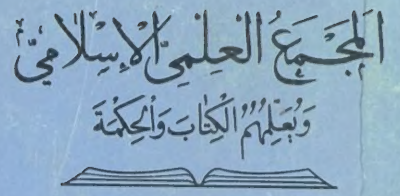 اَلْمَجْمَعُ الْعِلْمِيّ الْإِسْلَامِيّ
وَيُعَلِّمُهُمُ الْكِتَابَ وَالْحِكْمَةَ